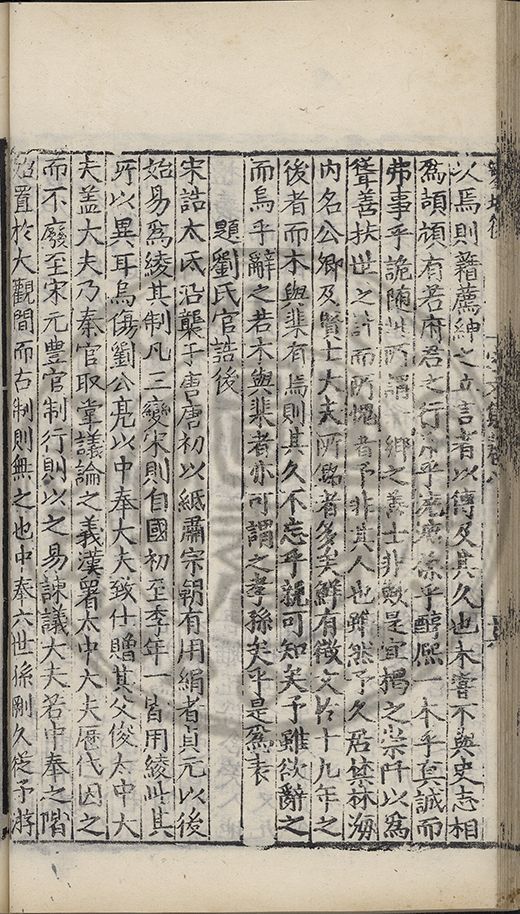 以焉則藉薦紳之立言者以傳及其久也未嘗不與史志相
為頡頏有若府君之行
弗事乎詭隨此所謂一鄉之善士非歟是宜揭之崇阡以為
聳善扶世之計而所愧者予非其人也雖然予久居禁林海
內名公卿及賢士大夫所銘者多矣鮮有徵文於十九年之
後者而木與棐有焉則其久不忘乎親可知矣予雖欲辭之
而烏乎辭之若木與棐者亦可謂之孝孫矣乎是為表
題劉氏官誥後
宋誥大氐沿襲于唐唐初以紙肅宗朝有用絹者貞元以後
始易為綾其制凡三變宋則自國初至季年一皆用綾此其
所以異耳烏傷劉公亮以中奉大夫致仕贈其父俊太中大
夫蓋大夫乃秦官取掌議論之義漢署太中大夫歷代因之
而不廢至宋元豐官制行則以之易諫議大夫若中奉之階
始置於大觀間而古制則無之也中奉六世孫剛久從予游